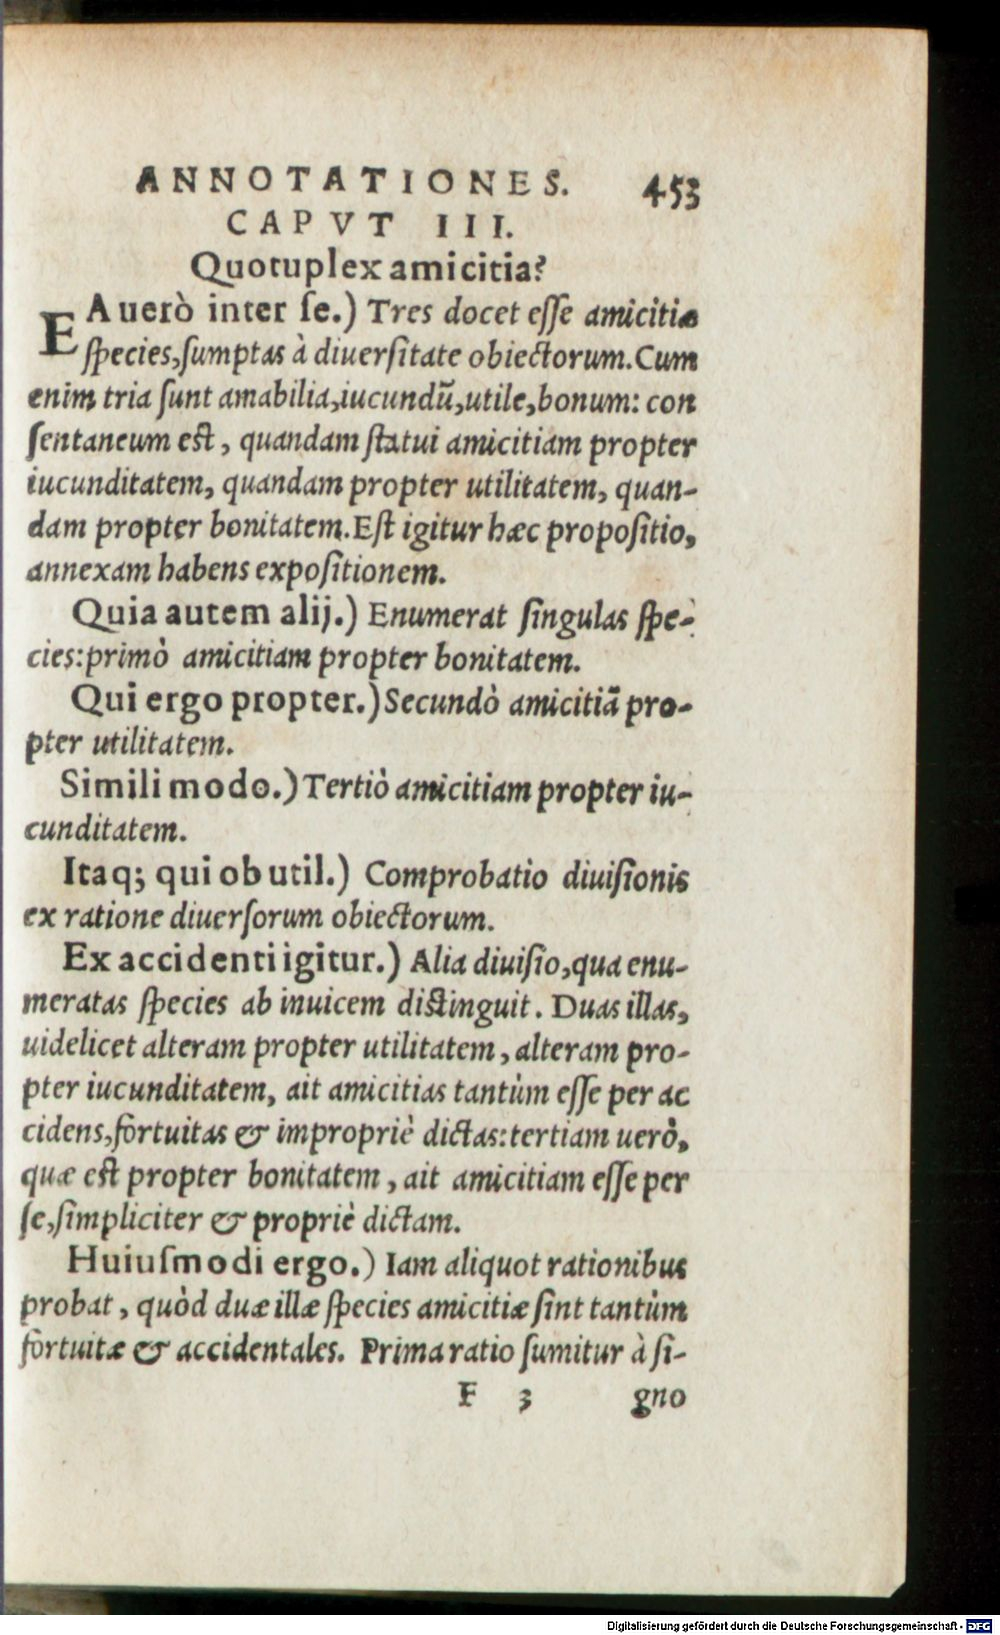 ANNOTATIONES. 453
CAPVT III.
Quotuplex amicitia?
EA uerò inter ſe.) Tres docet eſſe amicitiæ
ſpecies,ſumptas à diuerſitate obiectorum.Cum
enim tria ſunt amabilia,iucundũ,utile,bonum: con
ſentaneum eſt, quandam ſtatui amicitiam propter
iucunditatem, quandam propter utilitatem, quan-
dam propter bonitatem.Eſt igitur hæc propoſitio,
annexam habens expoſitionem.
Quia autem alij.) Enumerat ſingulas ſpe-
cies:primò amicitiam propter bonitatem.
Qui ergo propter.) Secundò amicitiã pro-
pter utilitatem.
Simili modo.) Tertiò amicitiam propter iu-
cunditatem.
Itaq; qui ob util.) Comprobatio diuiſionis
ex ratione diuerſorum obiectorum.
Ex accidenti igitur.) Alia diuiſio,qua enu-
meratas ſpecies ab inuicem diſtinguit. Duas illas,
uidelicet alteram propter utilitatem, alteram pro-
pter iucunditatem, ait amicitias tantùm eſſe per ac
cidens,fortuitas & impropriè dictas:tertiam uerò,
quæ eſt propter bonitatem, ait amicitiam eſſe per
ſe,ſimpliciter & propriè dictam.
Huiuſmodi ergo.) Iam aliquot rationibus
probat, quòd duæ illæ ſpecies amicitiæ ſint tantùm
fortuitæ & accidentales. Prima ratio ſumitur à ſi-
F 3 gno
Digitalisierung gefördert durch die Deutsche Forschungsgemeinschaft - DFG